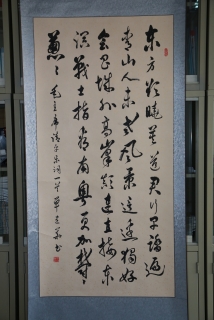 东方欲晓莫道君行早踏遍
青山人未老风景这边独好
会昌城外高峰颠连直接东
溟战士指看南粤更加郁々
葱々
毛主席清平乐词一首 书